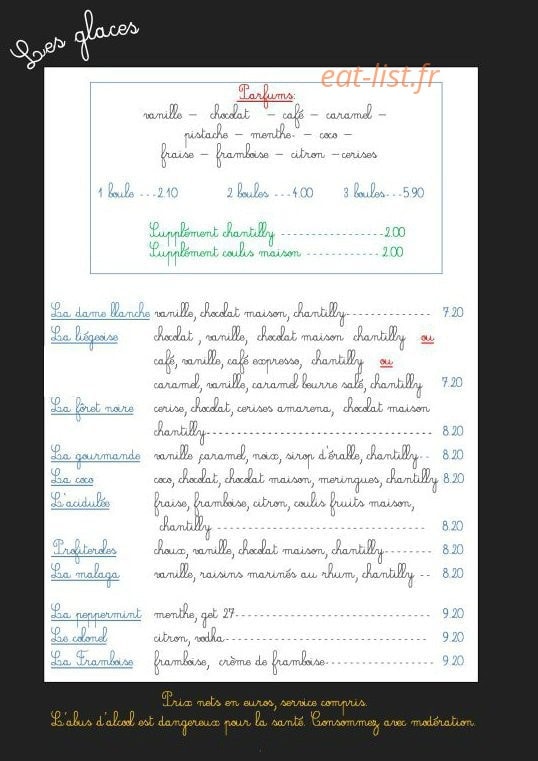 Les glaces
eat-list.fr
Parfums:
vanille - chocolat - café - caramel -
pistache - menthe - coco -
fraise - framboise - citron - cerises
1 boule ---2.10 2 boules ---4.00 3 boules---5.90
Supplément chantilly ----------------2.00
Supplément coulis maison ------------ 2.00
La dame blanche vanille, chocolat maison, chantilly-------------- 7.20
La liégeoise chocolat , vanille, chocolat maison chantilly ou
café, vanille, café expresso, chantilly ou
caramel, vanille, caramel beurre salé, chantilly 7.20
La fôret noire cerise, chocolat, cerises amarena, chocolat maison
chantilly------------------------------------ 8.20
La gourmande vanille ,caramel, noix, sirop d'éralle, chantilly-- 8.20
La coco coco, chocolat, chocolat maison, meringues, chantilly 8.20
L'acidulée fraise, framboise, citron, coulis fruits maison,
chantilly ---------------------------------- 8.20
Profiteroles choux, vanille, chocolat maison, chantilly------- 8.20
La malaga vanille, raisins marinés au rhum, chantilly -- 8.20
La peppermint menthe, get 27------------------------------ 9.20
Le colonel citron, vodka-------------------------------- 9.20
La Framboise framboise, crème de framboise---------------- 9.20
Prix nets en euros, service compris.
L'abus d'alcool est dangereux pour la santé. Consommez avec modération.